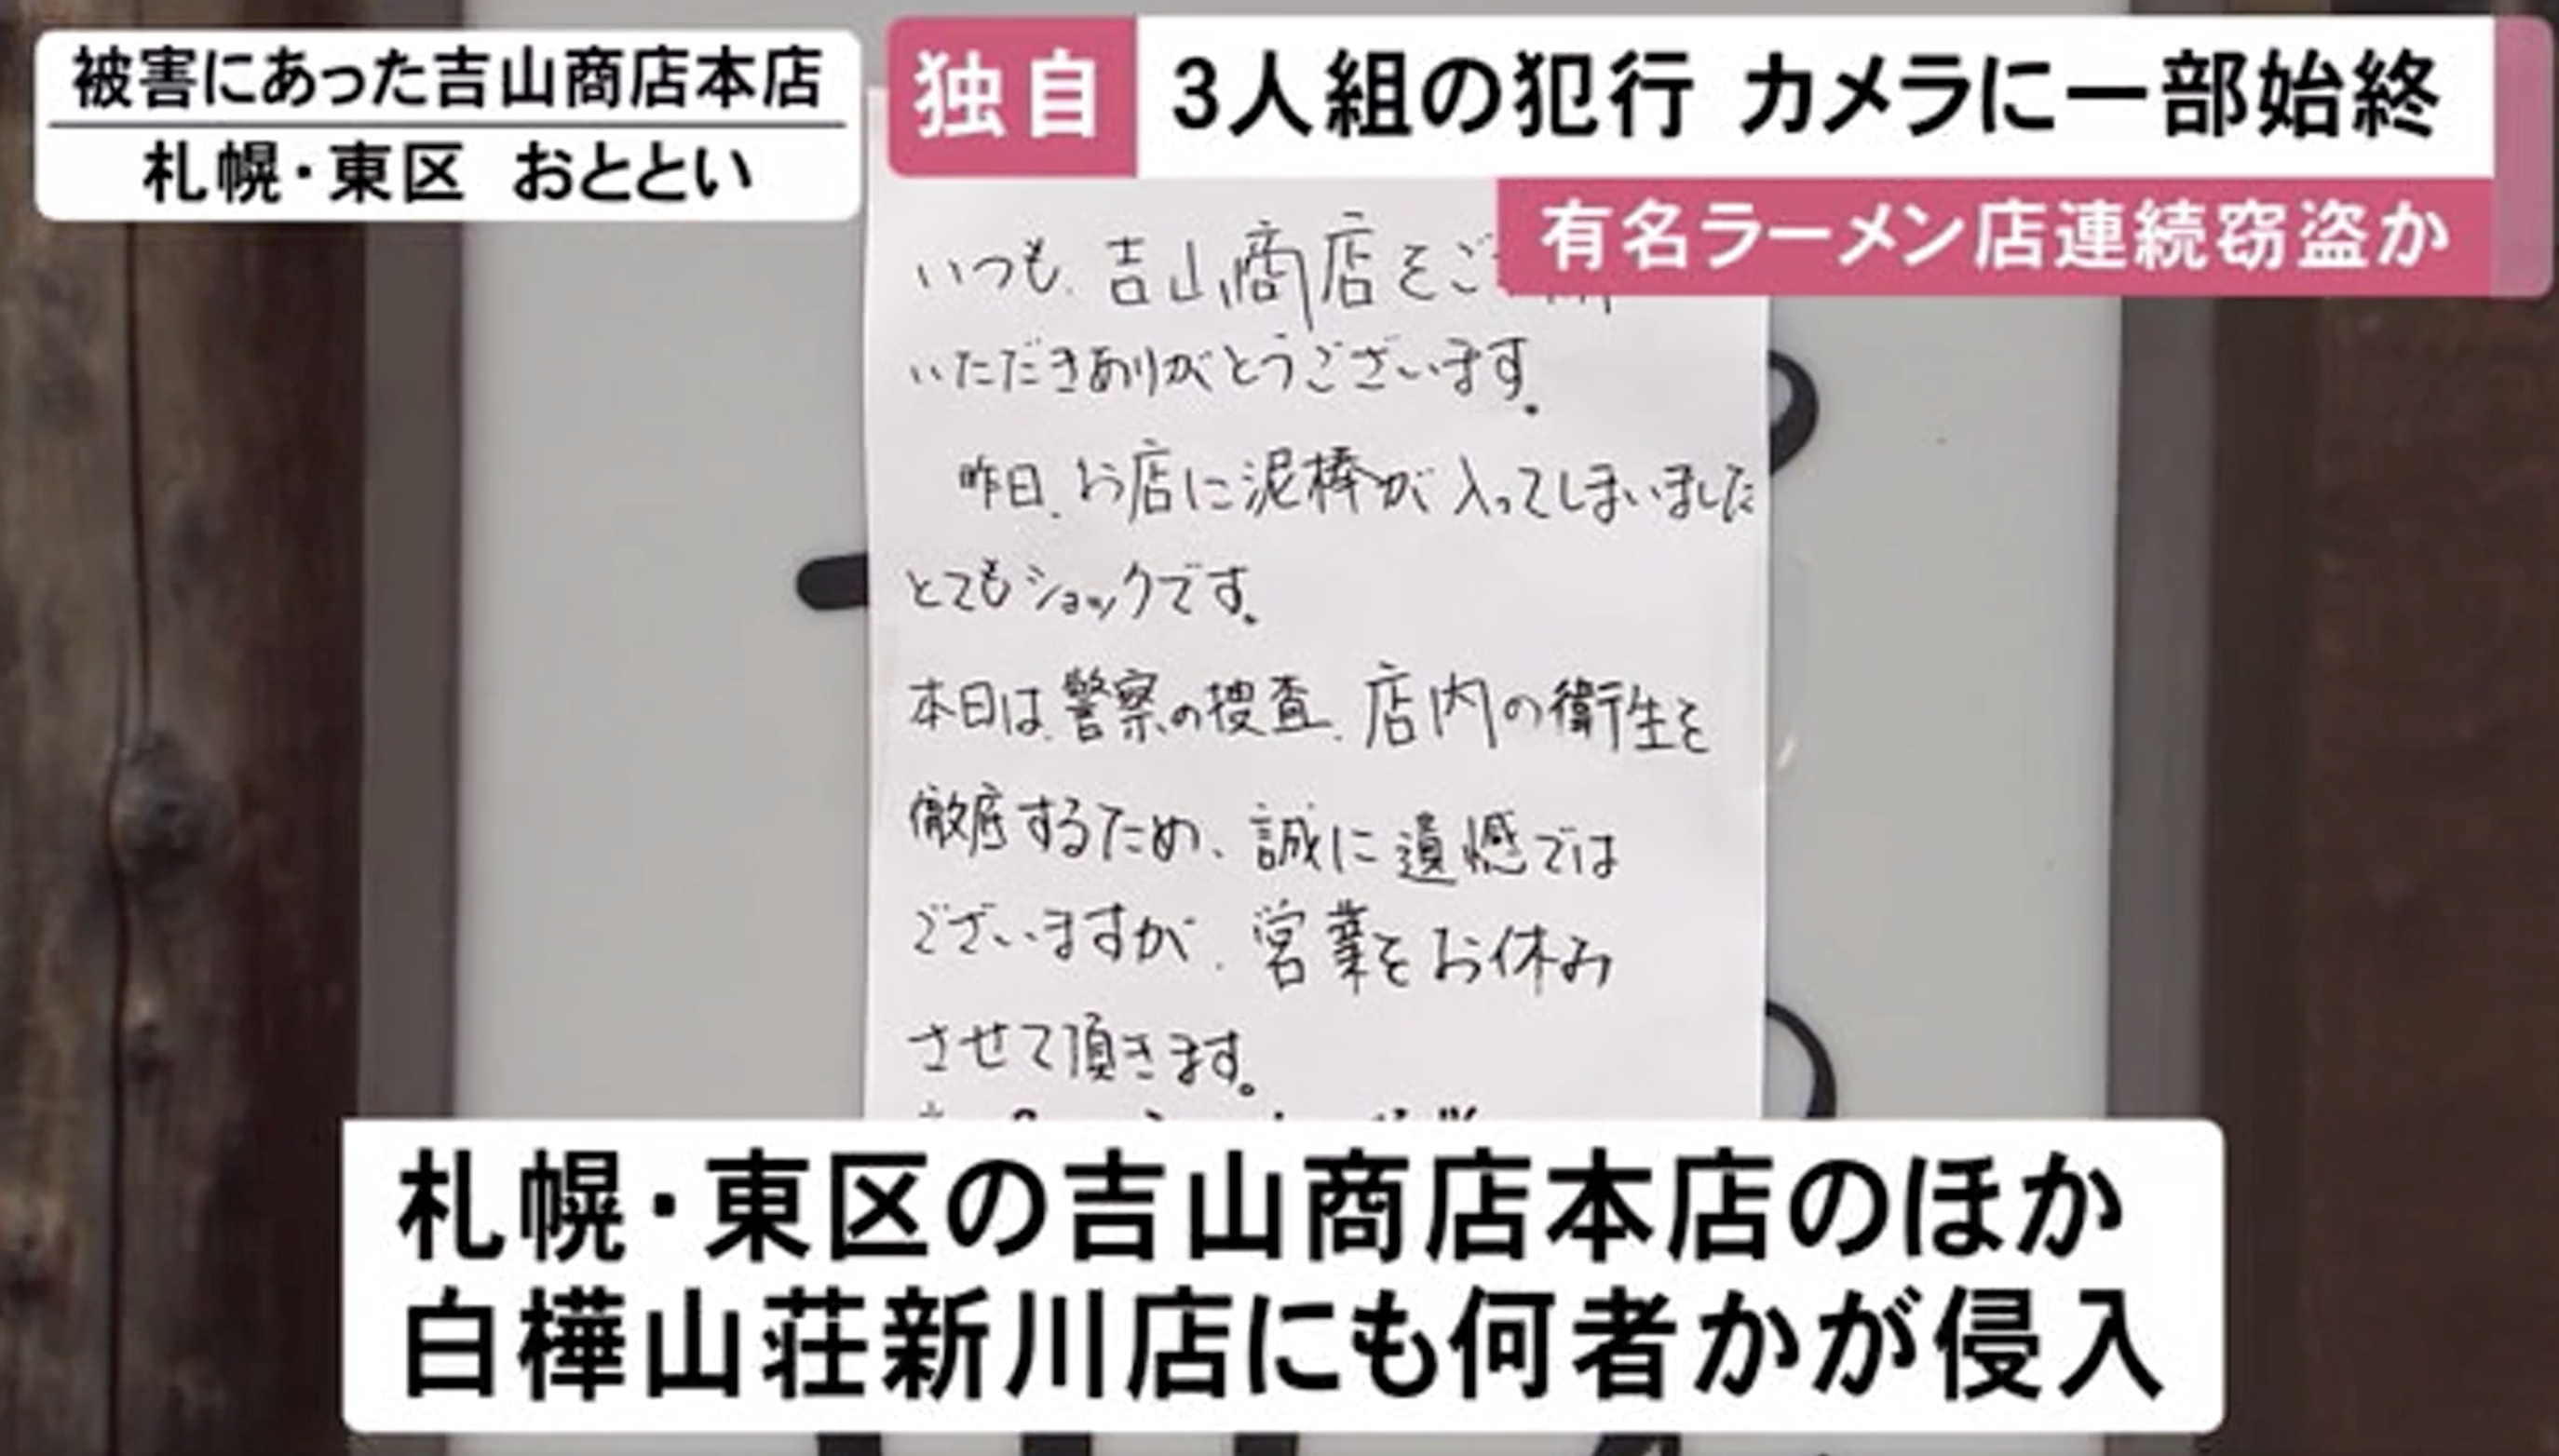 被害にあった吉山商店本店
札幌・東区 おととい
独自 3人組の犯行 カメラに一部始終
有名ラーメン店連続窃盗か
いつも、吉山商店をご
いただきありがとうございます。
昨日、お店に泥棒が入ってしまいました
とてもショックです。
本日は、警察の捜査、店内の衛生を
徹底するため、誠に遺憾では
ございますが、営業をお休み
させて頂きます。
札幌・東区の吉山商店本店のほか
白樺山荘新川店にも何者かが侵入